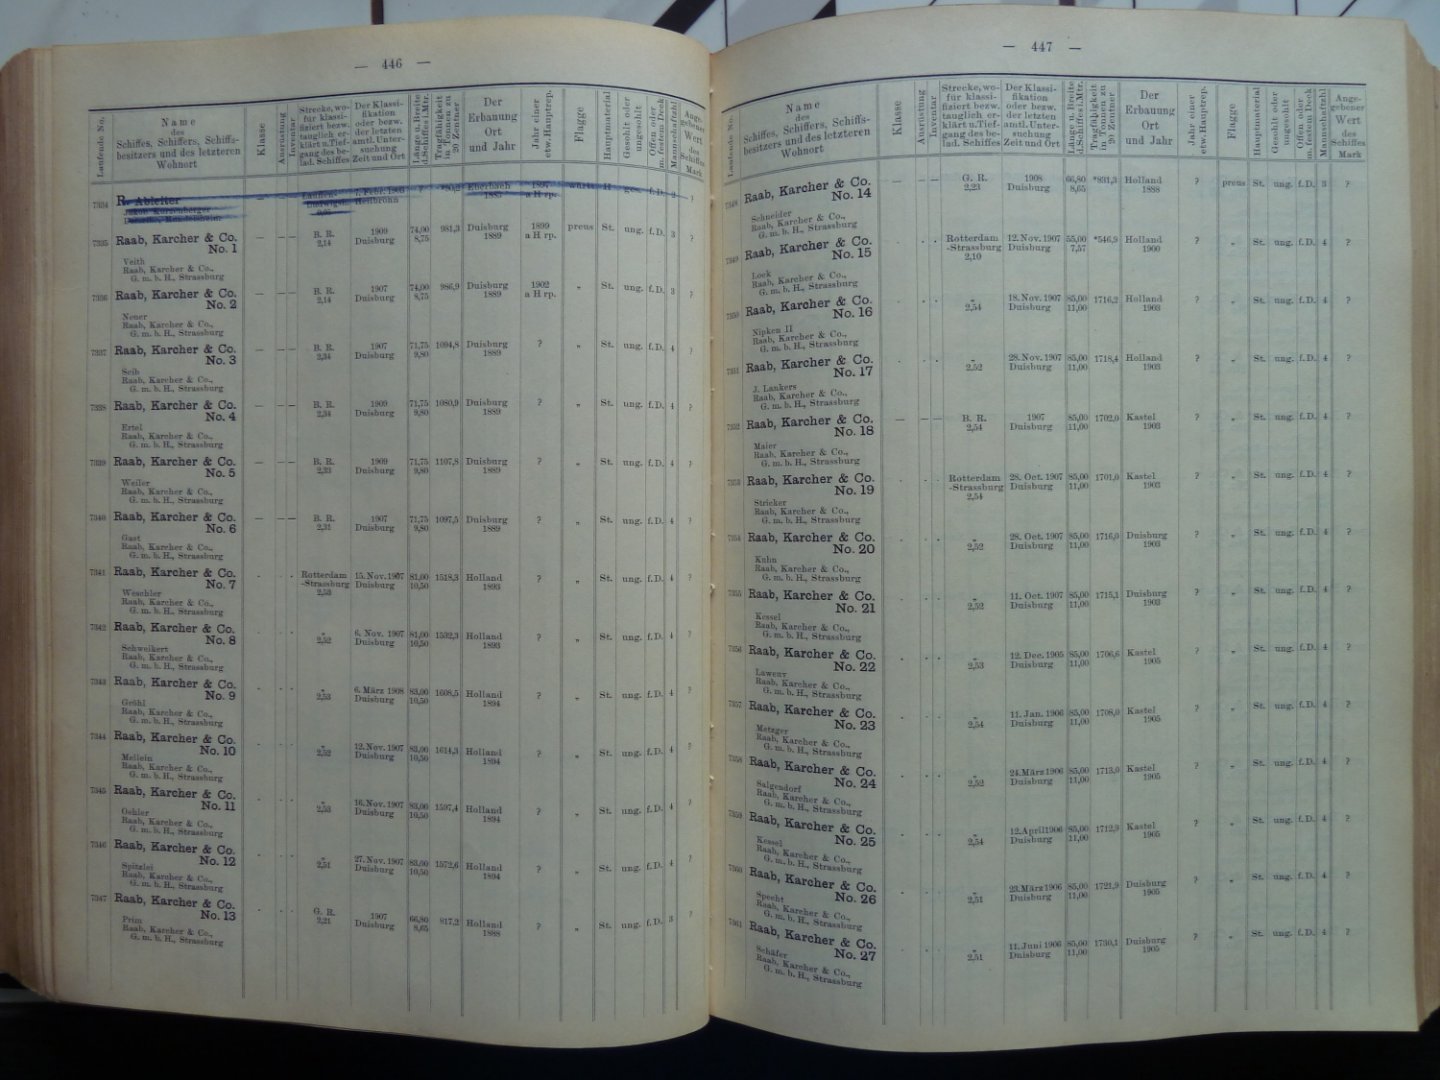 — 446 —
Laufende No.
Name
des
Schiffes, Schiffers, Schiffs-
besitzers und des letzteren
Wohnort
Klasse
Ausrüstung
Inventar
Strecke, wo-
für klassi-
fiziert bezw.
tauglich er-
klärt u.Tief-
gang des be-
lad. Schiffes
Der Klassi-
fikation
oder bezw.
der letzten
amtl. Unter-
suchung
Zeit und Ort
Länge u. Breite
d.Schiffes i.Mtr.
Tragfähigkeit
in Tonnen zu
20 Zentner
Der
Erbauung
Ort
und Jahr
Jahr einer
etw.Hauptrep.
Flagge
Hauptmaterial
Gesohlt oder
ungesohlt
Offen oder
m. festem Deck
Mannschaftzahl
Ange-
gebener
Wert
des
Schiffes
Mark
7334 R. Ableiter
7335 Raab, Karcher & Co. No. 1 — — — B. R. 2,14 1909 Duisburg 74,00 8,75 981,3 Duisburg 1889 1899 a H rp. preus St. ung. f.D. 3 ?
Veith
Raab, Karcher & Co.,
G. m. b. H., Strassburg
7336 Raab, Karcher & Co. No. 2 — — — B. R. 2,14 1907 Duisburg 74,00 8,75 986,9 Duisburg 1889 1902 a H rp. „ St. ung. f.D. 3 ?
Neuer
Raab, Karcher & Co.,
G. m. b. H., Strassburg
7337 Raab, Karcher & Co. No. 3 — — — B. R. 2,34 1907 Duisburg 71,75 9,80 1094,8 Duisburg 1889 ? „ St. ung. f.D. 4 ?
Seib
Raab, Karcher & Co.,
G. m. b. H., Strassburg
7338 Raab, Karcher & Co. No. 4 — — — B. R. 2,34 1909 Duisburg 71,75 9,80 1080,9 Duisburg 1889 ? „ St. ung. f.D. 4 ?
Ertel
Raab, Karcher & Co.,
G. m. b. H., Strassburg
7339 Raab, Karcher & Co. No. 5 — — — B. R. 1909 Duisburg 71,75 9,80 1107,8 Duisburg 1889 ? „ St. ung. f.D. 4 ?
Weiler
Raab, Karcher & Co.,
G. m. b. H., Strassburg
7340 Raab, Karcher & Co. No. 6 — — — B. R. 2,31 1907 Duisburg 71,75 9,80 1097,5 Duisburg 1889 ? „ St. ung. f.D. 4 ?
Gast
Raab, Karcher & Co.,
G. m. b. H., Strassburg
7341 Raab, Karcher & Co. No. 7 . . . Rotterdam -Strassburg 15.Nov.1907 Duisburg 81,00 10,50 1518,3 Holland 1893 ? „ St. ung. f.D. 4 ?
Weschler
Raab, Karcher & Co.,
G. m. b. H., Strassburg
7342 Raab, Karcher & Co. No. 8 . . . „ 2,52 6. Nov. 1907 Duisburg 81,00 10,50 1532,3 Holland 1893 ? „ St. ung. f.D. 4 ?
Schweikert
Raab, Karcher & Co.,
G. m. b. H., Strassburg
7343 Raab, Karcher & Co. No. 9 . . . „ 2,53 6. März 1908 Duisburg 83,00 10,50 1608,5 Holland 1894 ? „ St. ung. f.D. 4 ?
Gröhl
Raab, Karcher & Co.,
G. m. b. H., Strassburg
7344 Raab, Karcher & Co. No. 10 . . . „ 2,52 12.Nov. 1907 Duisburg 83,00 10,50 1614,3 Holland 1894 ? „ St. ung. f.D. 4 ?
Mellein
Raab, Karcher & Co.,
G. m. b. H., Strassburg
7345 Raab, Karcher & Co. No. 11 . . . „ 2,53 16.Nov. 1907 Duisburg 83,00 10,50 1597,4 Holland 1894 ? „ St. ung. f.D. 4 ?
Oehler
Raab, Karcher & Co.,
G. m. b. H., Strassburg
7346 Raab, Karcher & Co. No. 12 . . . „ 2,51 27.Nov. 1907 Duisburg 83,00 10,50 1572,6 Holland 1894 ? „ St. ung. f.D. 4 ?
Spitzlei
Raab, Karcher & Co.,
G. m. b. H., Strassburg
7347 Raab, Karcher & Co. No. 13 . . . G. R. 2,21 1907 Duisburg 66,80 8,65 817,2 Holland 1888 ? „ St. ung. f.D. 3 ?
Prim
Raab, Karcher & Co.,
G. m. b. H., Strassburg
— 447 —
Laufende No.
Name
des
Schiffes, Schiffers, Schiffs-
besitzers und des letzteren
Wohnort
Klasse
Ausrüstung
Inventar
Strecke, wo-
für klassi-
fiziert bezw.
tauglich er-
klärt u.Tief-
gang des be-
lad. Schiffes
Der Klassi-
fikation
oder bezw.
der letzten
amtl. Unter-
suchung
Zeit und Ort
Länge u. Breite
d.Schiffes i.Mtr.
Tragfähigkeit
in Tonnen zu
20 Zentner
Der
Erbauung
Ort
und Jahr
Jahr einer
etw.Hauptrep.
Flagge
Hauptmaterial
Gesohlt oder
ungesohlt
Offen oder
m. festem Deck
Mannschaftzahl
Ange-
gebener
Wert
des
Schiffes
Mark
7348 Raab, Karcher & Co. No. 14 — — — G. R. 2,23 1908 Duisburg 66,80 8,65 *831,3 Holland 1888 ? preus St. ung. f.D. 3 ?
Schneider
Raab, Karcher & Co.,
G. m. b. H., Strassburg
7349 Raab, Karcher & Co. No. 15 . . . Rotterdam -Strassburg 2,10 12.Nov. 1907 Duisburg 55,00 7,57 *546,9 Holland 1900 ? „ St. ung. f.D. 4 ?
Lock
Raab, Karcher & Co.,
G. m. b. H., Strassburg
7350 Raab, Karcher & Co. No. 16 . . . „ 2,54 18.Nov. 1907 Duisburg 85,00 11,00 1716,2 Holland 1903 ? „ St. ung. f.D. 4 ?
Nipken II
Raab, Karcher & Co.,
G. m. b. H., Strassburg
7351 Raab, Karcher & Co. No. 17 . . . „ 2,52 28.Nov. 1907 Duisburg 85,00 11,00 1718,4 Holland 1903 ? „ St. ung. f.D. 4 ?
J. Lankers
Raab, Karcher & Co.,
G. m. b. H., Strassburg
7352 Raab, Karcher & Co. No. 18 — — — B. R. 2,54 1907 Duisburg 85,00 11,00 1702,0 Kastel 1903 ? „ St. ung. f.D. 4 ?
Maier
Raab, Karcher & Co.,
G. m. b. H., Strassburg
7353 Raab, Karcher & Co. No. 19 . . . Rotterdam -Strassburg 2,54 28. Oct. 1907 Duisburg 85,00 11,00 1701,0 Kastel 1903 ? „ St. ung. f.D. 4 ?
Stricker
Raab, Karcher & Co.,
G. m. b. H., Strassburg
7354 Raab, Karcher & Co. No. 20 . . . „ 2,52 28. Oct. 1907 Duisburg 85,00 11,00 1716,0 Duisburg 1903 ? „ St. ung. f.D. 4 ?
Kuhn
Raab, Karcher & Co.,
G. m. b. H., Strassburg
7355 Raab, Karcher & Co. No. 21 . . . „ 2,52 11. Oct. 1907 Duisburg 85,00 11,00 1715,1 Duisburg 1903 ? „ St. ung. f.D. 4 ?
Kessel
Raab, Karcher & Co.,
G. m. b. H., Strassburg
7356 Raab, Karcher & Co. No. 22 . . . „ 2,53 12. Dec. 1905 Duisburg 85,00 11,00 1706,6 Kastel 1905 ? „ St. ung. f.D. 4 ?
Raab, Karcher & Co.,
G. m. b. H., Strassburg
7357 Raab, Karcher & Co. No. 23 . . . „ 2,54 11. Jan. 1906 Duisburg 85,00 11,00 1708,0 Kastel 1905 ? „ St. ung. f.D. 4 ?
Metzger
Raab, Karcher & Co.,
G. m. b. H., Strassburg
7358 Raab, Karcher & Co. No. 24 . . . „ 2,52 24.März 1906 Duisburg 85,00 11,00 1713,0 Kastel 1905 ? „ St. ung. f.D. 4 ?
Salgendorf
Raab, Karcher & Co.,
G. m. b. H., Strassburg
7359 Raab, Karcher & Co. No. 25 . . . „ 2,54 12.April1906 Duisburg 85,00 11,00 1712,9 Kastel 1905 ? „ St. ung. f.D. 4 ?
Kessel
Raab, Karcher & Co.,
G. m. b. H., Strassburg
7360 Raab, Karcher & Co. No. 26 . . . „ 2,51 23.März 1906 Duisburg 85,00 11,00 1721,9 Duisburg 1905 ? „ St. ung. f.D. 4 ?
Specht
Raab, Karcher & Co.,
G. m. b. H., Strassburg
7361 Raab, Karcher & Co. No. 27 . . . „ 2,51 11. Juni 1906 Duisburg 85,00 11,00 1730,1 Duisburg 1905 ? „ St. ung. f.D. 4 ?
Schäfer
Raab, Karcher & Co.,
G. m. b. H., Strassburg